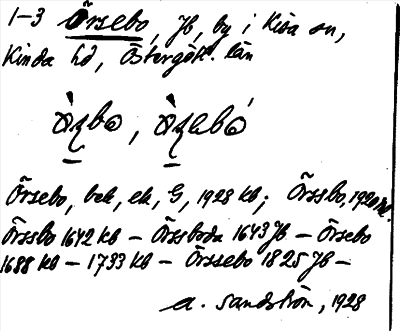 1-3 Örsebo, Jb, by i Kisa sn,
Kinda hd, Östergötl. län
Örsebo, bek, ek, G, 1928 kb; Örssbo, 1920
Örssbo 1642 kb – Örssboda 1643 Jb – Örsebo
1688 kb – 1733 kb – Örssebo 1825 Jb –
A. Sandström, 1928